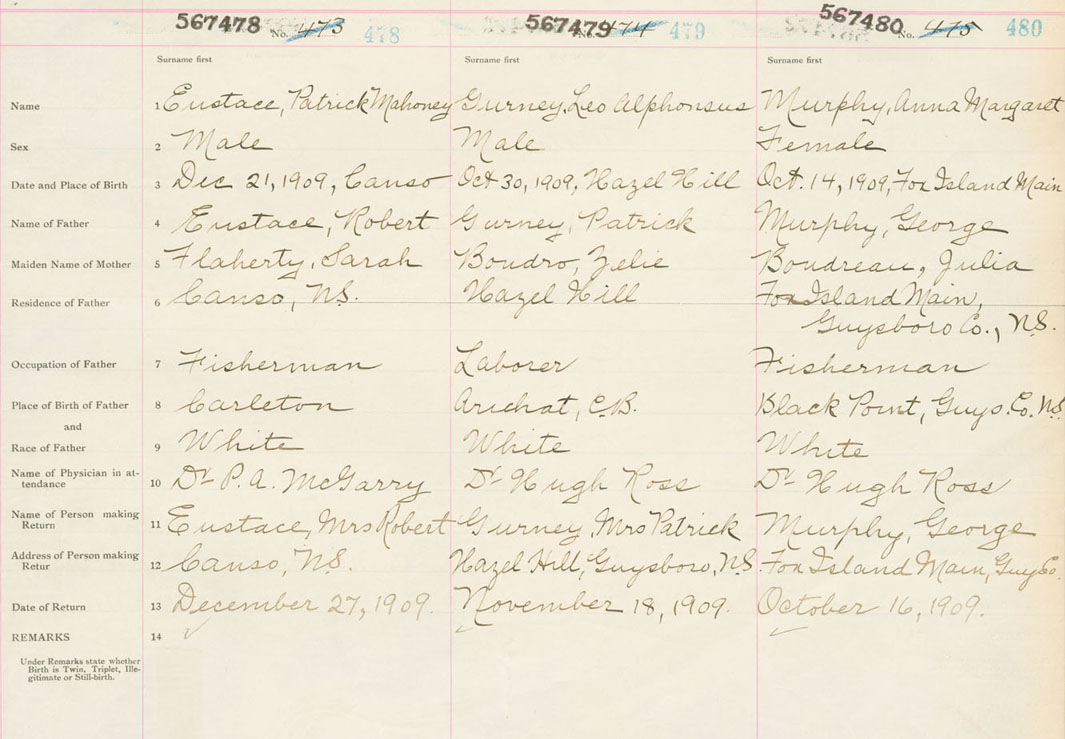 567478 No. 473 478 567479 No. 474 479 567480 No. 475 480
Surname first Surname first Surname first
Name 1 Eustace, Patrick Mahoney Gurney, Leo Alphonsus Murphy, Anna Margaret
Sex 2 Male Male Female
Date and Place of Birth 3 Dec 21, 1909, Canso Oct 30, 1909, Hazel Hill Oct. 14, 1909, Fox Island Main
Name of Father 4 Eustace, Robert Gurney, Patrick Murphy, George
Maiden Name of Mother 5 Flaherty, Sarah Boudro, Zelie Boudreau, Julia
Residence of Father 6 Canso, N.S. Hazel Hill Fox Island Main,
Guysboro Co., N.S.
Occupation of Father 7 Fisherman Laborer Fisherman
Place of Birth of Father 8 Carleton Arichat, C.B. Black Point, Guys. Co. N.S.
and
Race of Father 9 White White White
Name of Physician in at-
tendance 10 Dr P. A. McGarry Dr Hugh Ross Dr Hugh Ross
Name of Person making
Return 11 Eustace, Mrs Robert Gurney, Mrs Patrick Murphy, George
Address of Person making
Retur 12 Canso, N.S. Hazel Hill, Guysboro, N.S. Fox Island Main, Guy Co.
Date of Return 13 December 27, 1909. November 18, 1909. October 16, 1909.
REMARKS 14
Under Remarks state whether
Birth is Twin, Triplet, Ille-
gitimate or Still-birth.